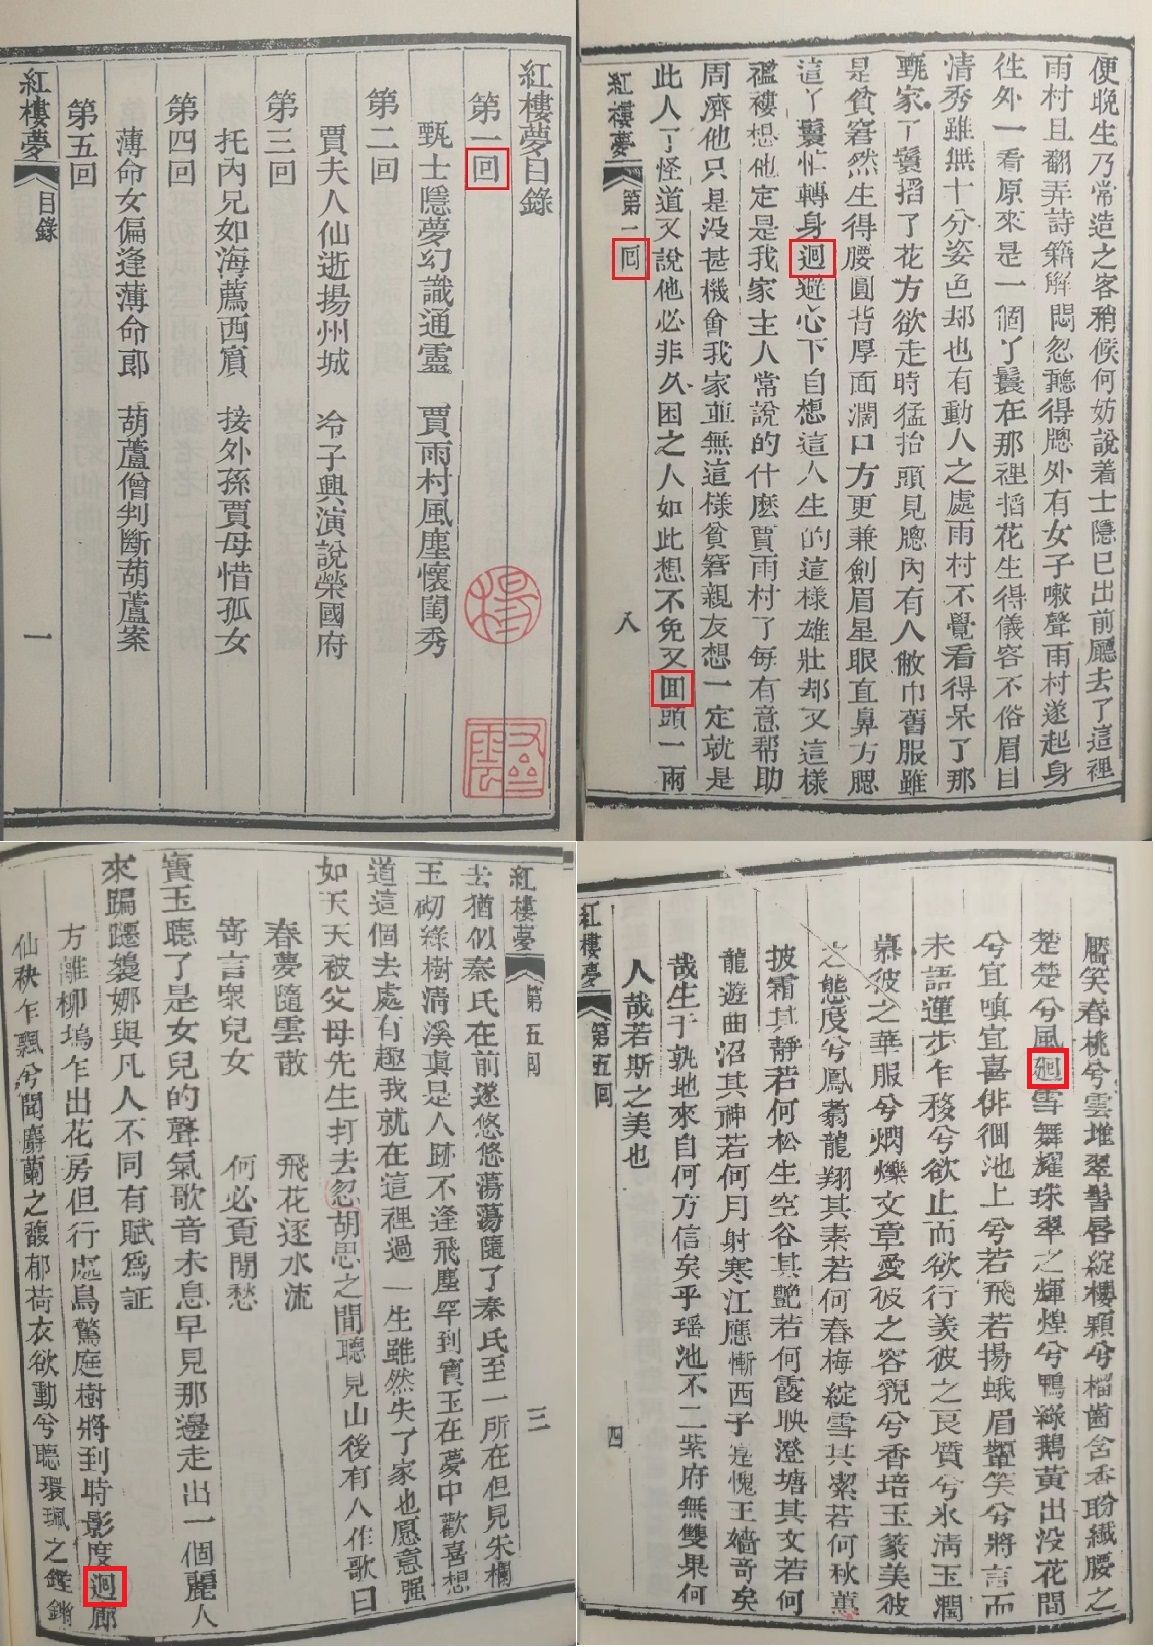 紅樓夢目錄
第一回
甄士隱夢幻識通靈 賈雨村風塵懷閨秀
第二回
賈夫人仙逝揚州城 冷子興演說榮國府
第三回
托內兄如海薦西賔 接外孫賈母惜孤女
第四回
薄命女偏逢薄命郎 葫蘆僧判斷葫蘆案
第五回
紅樓夢 目錄 一
便晚生乃常造之客稍候何妨說着士隱已出前廳去了這裡
雨村且翻弄詩籍解悶忽聽得牕外有女子嗽聲雨村遂起身
徃外一看原來是一個丫鬟在那裡搯花生得儀容不俗眉目
清秀雖無十分姿色却也有動人之處雨村不覺看得呆了那
甄家丫鬟搯了花方欲走時猛抬頭見牕內有人敝巾舊服雖
是貧窘然生得腰圓背厚面濶口方更兼劍眉星眼直鼻方腮
這丫鬟忙轉身迴避心下自想這人生的這樣雄壯却又這樣
襤褸想他定是我家主人常說的什麼賈雨村了每有意幇助
周濟他只是没甚機會我家並無這樣貧窘親友想一定就是
此人了怪道又說他必非久困之人如此想不免又囬頭一兩
紅樓夢 第一囘 八
紅樓夢 第五囘 三
去猶似秦氏在前遂悠悠蕩蕩隨了秦氏至一所在但見朱欄
玉砌綠樹清溪眞是人跡不逢飛塵罕到寶玉在夢中歡喜想
道這個去處有趣我就在這裡過一生雖然失了家也愿意强
如天天被父母先生打去忽胡思之間聽見山後有人作歌曰
春夢隨雲散 飛花逐水流
寄言衆兒女 何必覓閒愁
寶玉聽了是女兒的聲氣歌音未息早見那邊走出一個麗人
來蹁躚裊娜與凡人不同有賦爲証
方離柳塢乍出花房但行處鳥驚庭樹將到時影度迴廊
仙袂乍飄兮聞麝蘭之馥郁荷衣欲動兮聽環珮之鏗鏘
靨笑春桃兮雲堆翠髻唇綻櫻顆兮榴齒含香盼纖腰之
楚楚兮風迴雪舞耀珠翠之輝煌兮鴨綠鵝黄出没花間
兮宜嗔宜喜徘徊池上兮若飛若揚蛾眉顰笑兮將言而
未語蓮步乍移兮欲止而欲行羡彼之良質兮氷清玉潤
慕彼之華服兮爛爍文章愛彼之容貌兮香培玉篆美彼
之態度兮鳳翥龍翔其素若何春梅綻雪其潔若何秋蕙
披霜其靜若何松生空谷其艷若何霞映澄塘其文若何
龍遊曲沼其神若何月射寒江應慚西子寔愧王嬙竒矣
哉生于孰地來自何方信矣乎瑶池不二紫府無雙果何
人哉若斯之美也
紅樓夢 第五囘 四